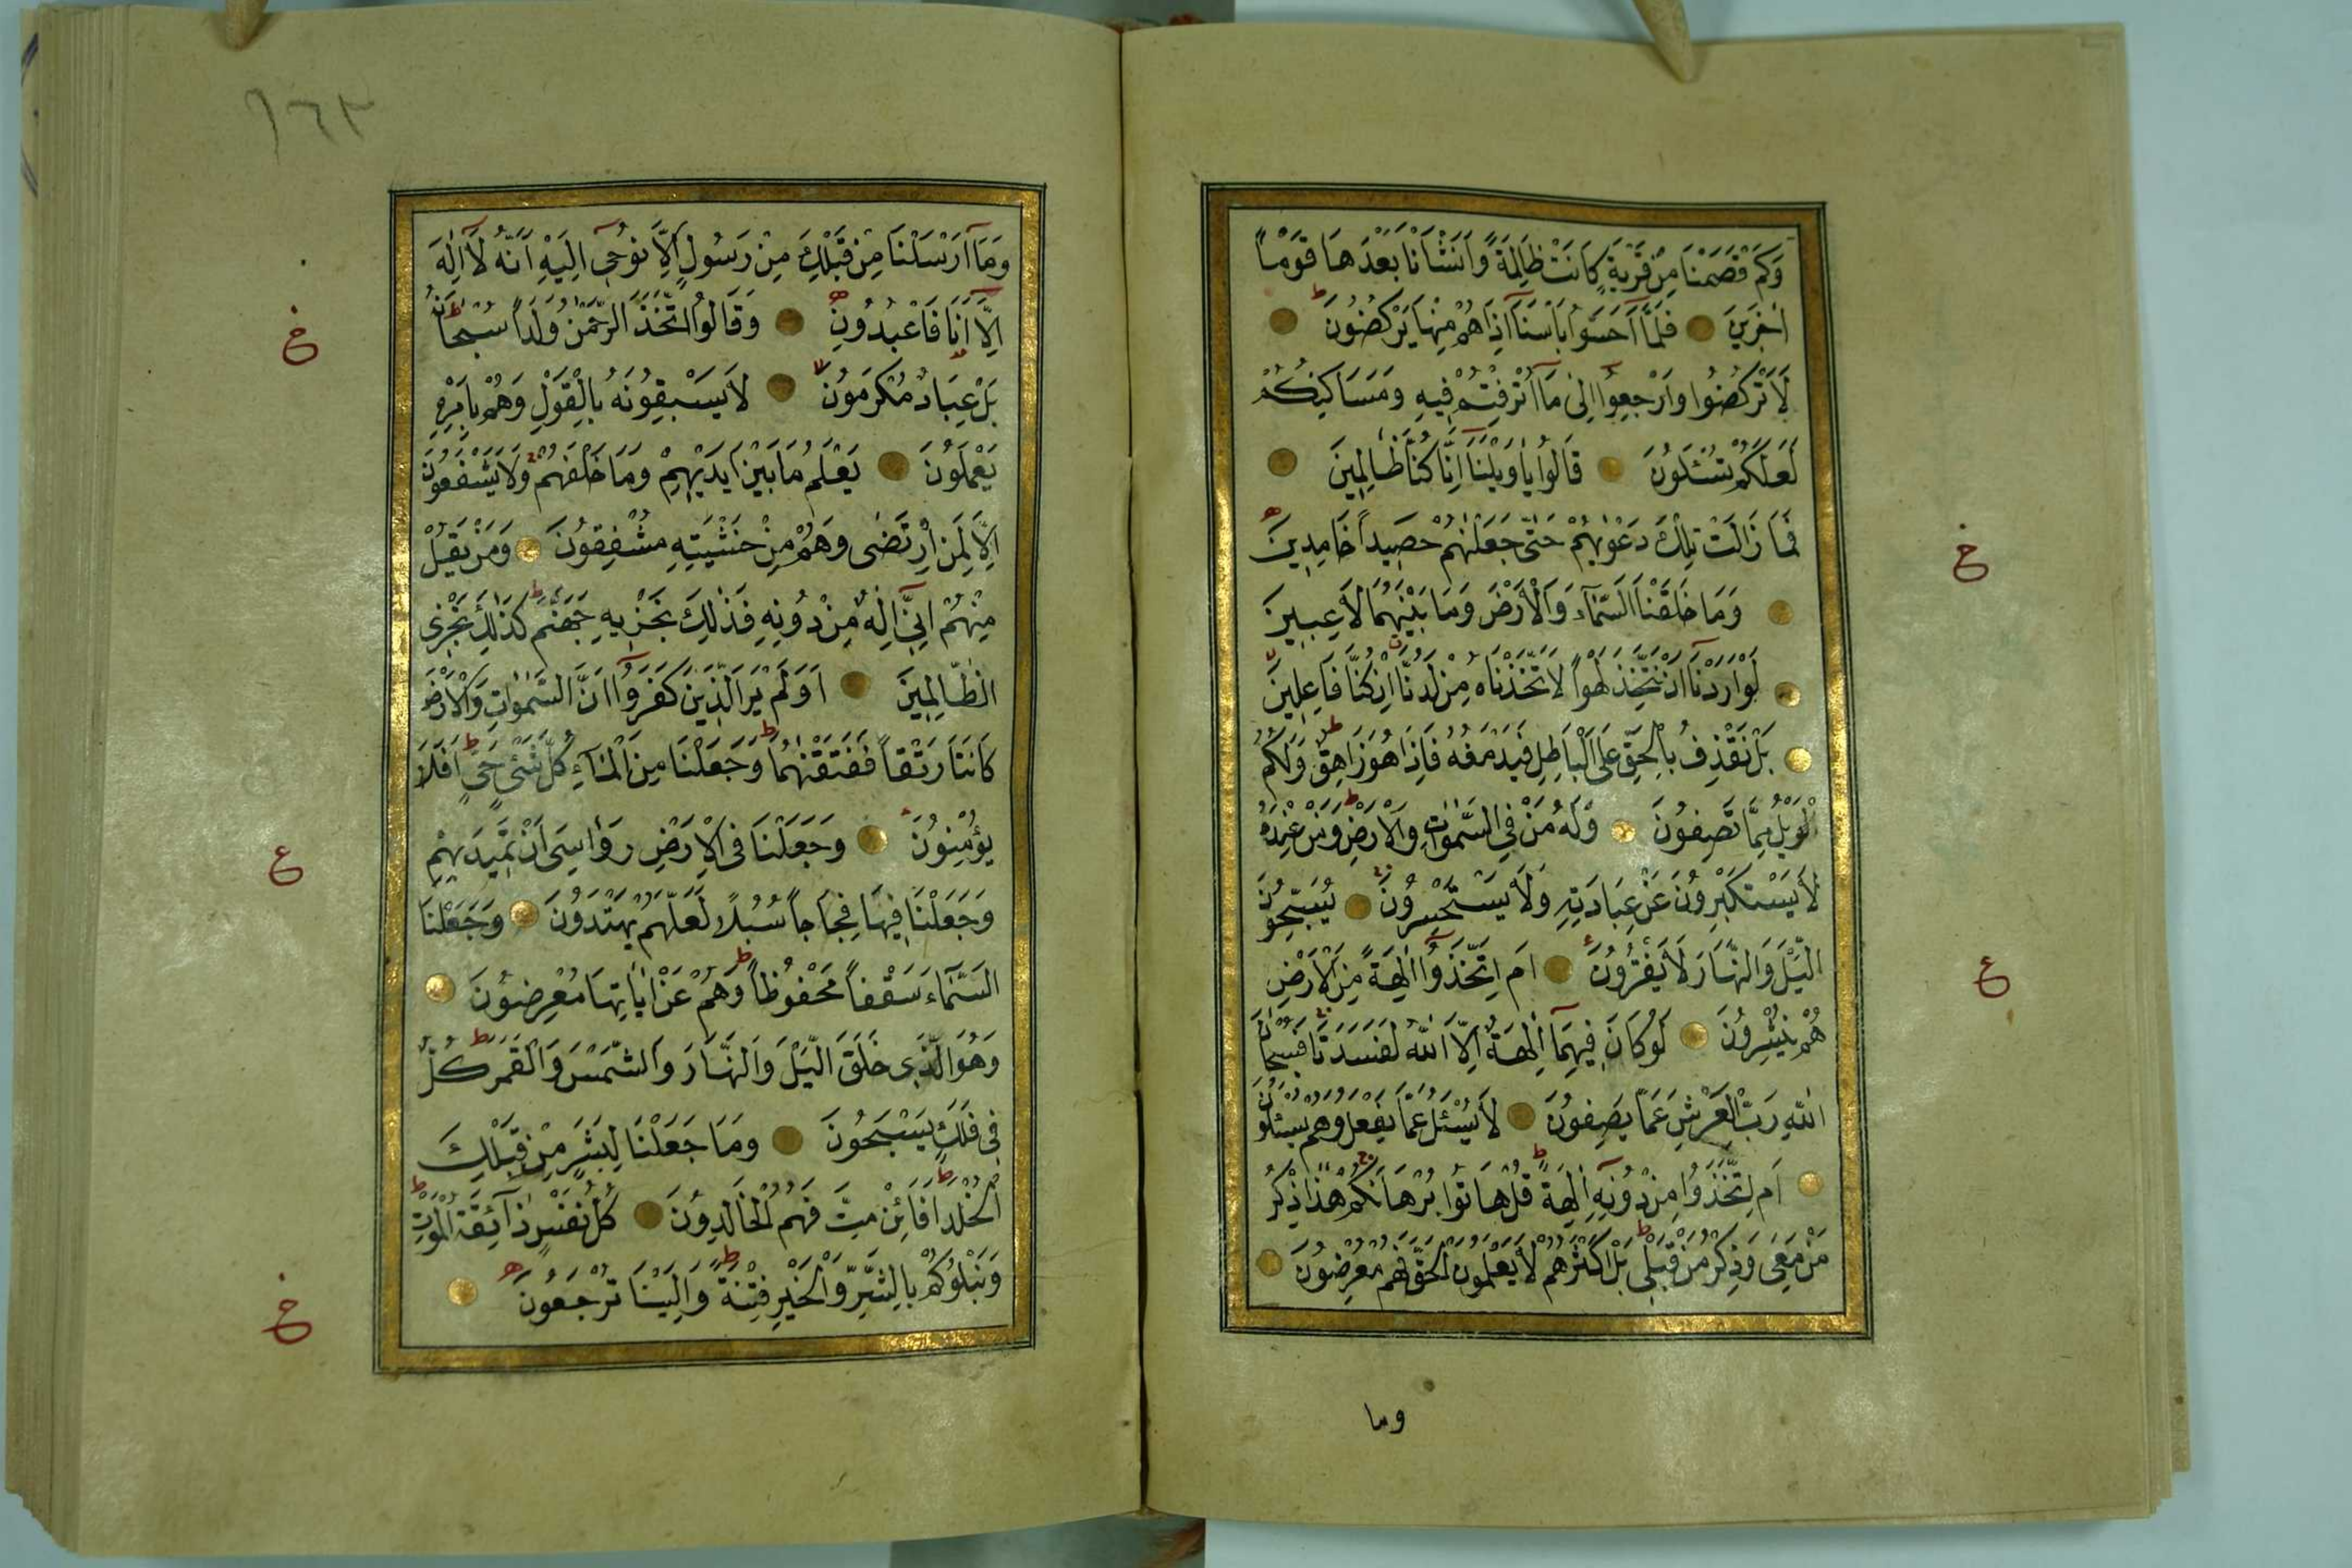 وَكَمْ قَصَمْنَا مِنْ قَرْيَةٍ كَانَتْ ظَالِمَةً وَاَنْشَأْنَا بَعْدَهَا قَوْمًا
اٰخَرِينَ ۝ فَلَمَّٓا اَحَسُّوا بَأْسَنَٓا اِذَا هُمْ مِنْهَا يَرْكُضُونَ ط ۝
لَا تَرْكُضُوا وَارْجِعُٓوا اِلٰى مَٓا اُتْرِفْتُمْ فِيهِ وَمَسَاكِنِكُمْ
لَعَلَّكُمْ تُسْـَٔلُونَ ۝ قَالُوا يَا وَيْلَنَٓا اِنَّا كُنَّا ظَالِمِينَ ۝
فَمَا زَالَتْ تِلْكَ دَعْوٰيهُمْ حَتّٰى جَعَلْنٰهُمْ حَصِيدًا خَامِدِينَ
۝ وَمَا خَلَقْنَا السَّمَٓاءَ وَالْاَرْضَ وَمَا بَيْنَهُمَا لَاعِبِينَ
۝ لَوْ اَرَدْنَٓا اَنْ نَتَّخِذَ لَهْوًا لَاتَّخَذْنَاهُ مِنْ لَدُنَّٓا اِنْ كُنَّا فَاعِلِينَ
۝ بَلْ نَقْذِفُ بِالْحَقِّ عَلَى الْبَاطِلِ فَيَدْمَغُهُ فَاِذَا هُوَ زَاهِقٌ ط وَلَكُمُ
الْوَيْلُ مِمَّا تَصِفُونَ ۝ وَلَهُ مَنْ فِي السَّمٰوَاتِ وَالْاَرْضِ ط وَمَنْ عِنْدَهُ
لَا يَسْتَكْبِرُونَ عَنْ عِبَادَتِهِ وَلَا يَسْتَحْسِرُونَ ۝ يُسَبِّحُونَ
الَّيْلَ وَالنَّهَارَ لَا يَفْتُرُونَ ۝ اَمِ اتَّخَذُٓوا اٰلِهَةً مِنَ الْاَرْضِ
هُمْ يُنْشِرُونَ ۝ لَوْ كَانَ فِيهِمَٓا اٰلِهَةٌ اِلَّا اللّٰهُ لَفَسَدَتَا فَسُبْحَانَ
اللّٰهِ رَبِّ الْعَرْشِ عَمَّا يَصِفُونَ ۝ لَا يُسْـَٔلُ عَمَّا يَفْعَلُ وَهُمْ يُسْـَٔلُونَ
۝ اَمِ اتَّخَذُوا مِنْ دُونِهِٓ اٰلِهَةً ط قُلْ هَاتُوا بُرْهَانَكُمْ هٰذَا ذِكْرُ
مَنْ مَعِيَ وَذِكْرُ مَنْ قَبْلِي ط بَلْ اَكْثَرُهُمْ لَا يَعْلَمُونَ الْحَقَّ فَهُمْ مُعْرِضُونَ ۝
وما
خ
ع
١٦٣
وَمَٓا اَرْسَلْنَا مِنْ قَبْلِكَ مِنْ رَسُولٍ اِلَّا نُوحِٓي اِلَيْهِ اَنَّهُ لَٓا اِلٰهَ
اِلَّٓا اَنَا فَاعْبُدُونِ ۝ وَقَالُوا اتَّخَذَ الرَّحْمٰنُ وَلَدًا سُبْحَانَهُ ط
بَلْ عِبَادٌ مُكْرَمُونَ لا ۝ لَا يَسْبِقُونَهُ بِالْقَوْلِ وَهُمْ بِاَمْرِهِ
يَعْمَلُونَ ۝ يَعْلَمُ مَا بَيْنَ اَيْدِيهِمْ وَمَا خَلْفَهُمْ وَلَا يَشْفَعُونَ
اِلَّا لِمَنِ ارْتَضٰى وَهُمْ مِنْ خَشْيَتِهِ مُشْفِقُونَ ۝ وَمَنْ يَقُلْ
مِنْهُمْ اِنِّٓي اِلٰهٌ مِنْ دُونِهِ فَذٰلِكَ نَجْزِيهِ جَهَنَّمَ ط كَذٰلِكَ نَجْزِي
الظَّالِمِينَ ۝ اَوَلَمْ يَرَ الَّذِينَ كَفَرُٓوا اَنَّ السَّمٰوَاتِ وَالْاَرْضَ
كَانَتَا رَتْقًا فَفَتَقْنٰهُمَا ط وَجَعَلْنَا مِنَ الْمَٓاءِ كُلَّ شَيْءٍ حَيٍّ ط اَفَلَا
يُؤْمِنُونَ ۝ وَجَعَلْنَا فِي الْاَرْضِ رَوَاسِيَ اَنْ تَمِيدَ بِهِمْ
وَجَعَلْنَا فِيهَا فِجَاجًا سُبُلًا لَعَلَّهُمْ يَهْتَدُونَ ۝ وَجَعَلْنَا
السَّمَٓاءَ سَقْفًا مَحْفُوظًا ط وَهُمْ عَنْ اٰيَاتِهَا مُعْرِضُونَ ۝
وَهُوَ الَّذِي خَلَقَ الَّيْلَ وَالنَّهَارَ وَالشَّمْسَ وَالْقَمَرَ ط كُلٌّ
فِي فَلَكٍ يَسْبَحُونَ ۝ وَمَا جَعَلْنَا لِبَشَرٍ مِنْ قَبْلِكَ
الْخُلْدَ ط اَفَائِنْ مِتَّ فَهُمُ الْخَالِدُونَ ۝ كُلُّ نَفْسٍ ذَٓائِقَةُ الْمَوْتِ ط
وَنَبْلُوكُمْ بِالشَّرِّ وَالْخَيْرِ فِتْنَةً ط وَاِلَيْنَا تُرْجَعُونَ ۝
خ
ع
خ